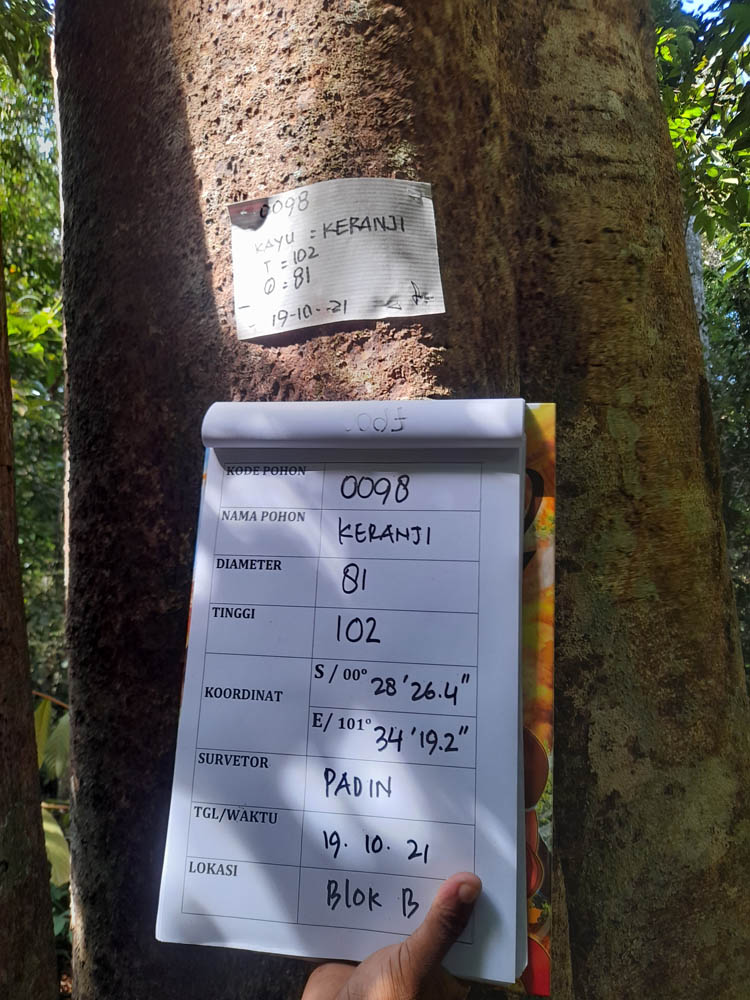 0098
KAYU = KERANJI
T = 102
Ø = 81
19-10-21
KODE POHON 0098
NAMA POHON KERANJI
DIAMETER 81
TINGGI 102
KOORDINAT S / 00° 28'26.4"
E/ 101° 34'19.2"
SURVETOR PADIN
TGL/WAKTU 19. 10. 21
LOKASI Blok B